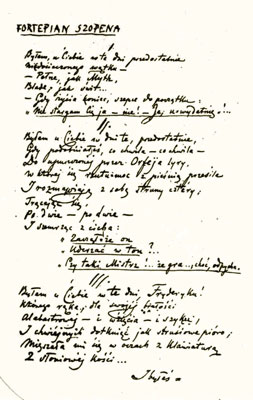 FORTEPIAN SZOPENA
I.
Byłem u Ciebie w te dni przedostatnie
Niedocieczonego wątku —
— Pełne, jak Mythe,
Blade, jak świt...
— Gdy życia koniec, szepce do początku:
„Nie stargam Cię ja — nie! — Ja, uwydatnię!...
II.
Byłem u Ciebie w dni te, przedostatnie,
Gdy podobniałeś, co chwila — co chwila —
Do upuszczonej przez Orfeja liry,
W której się rzutu-moc z pieśnią przesila
I rozmawiają z sobą struny cztery,
Trącając się,
Po dwie — po dwie —
I szemrząc z cicha:
„Zacząłże on
Uderzać w ton?..
Czy taki Mistrz!... że gra... choć, odpycha..
III.
Byłem u Ciebie w te dni Fryderyku!
Którego ręka, dla swojej białości
Alabastrowej — i wzięcia — i szyku,
I chwiejnych dotknięć jak strusiowe pióro,
Mięszała mi się w oczach z klawiaturą
Z słoniowej kości...
I byłeś —